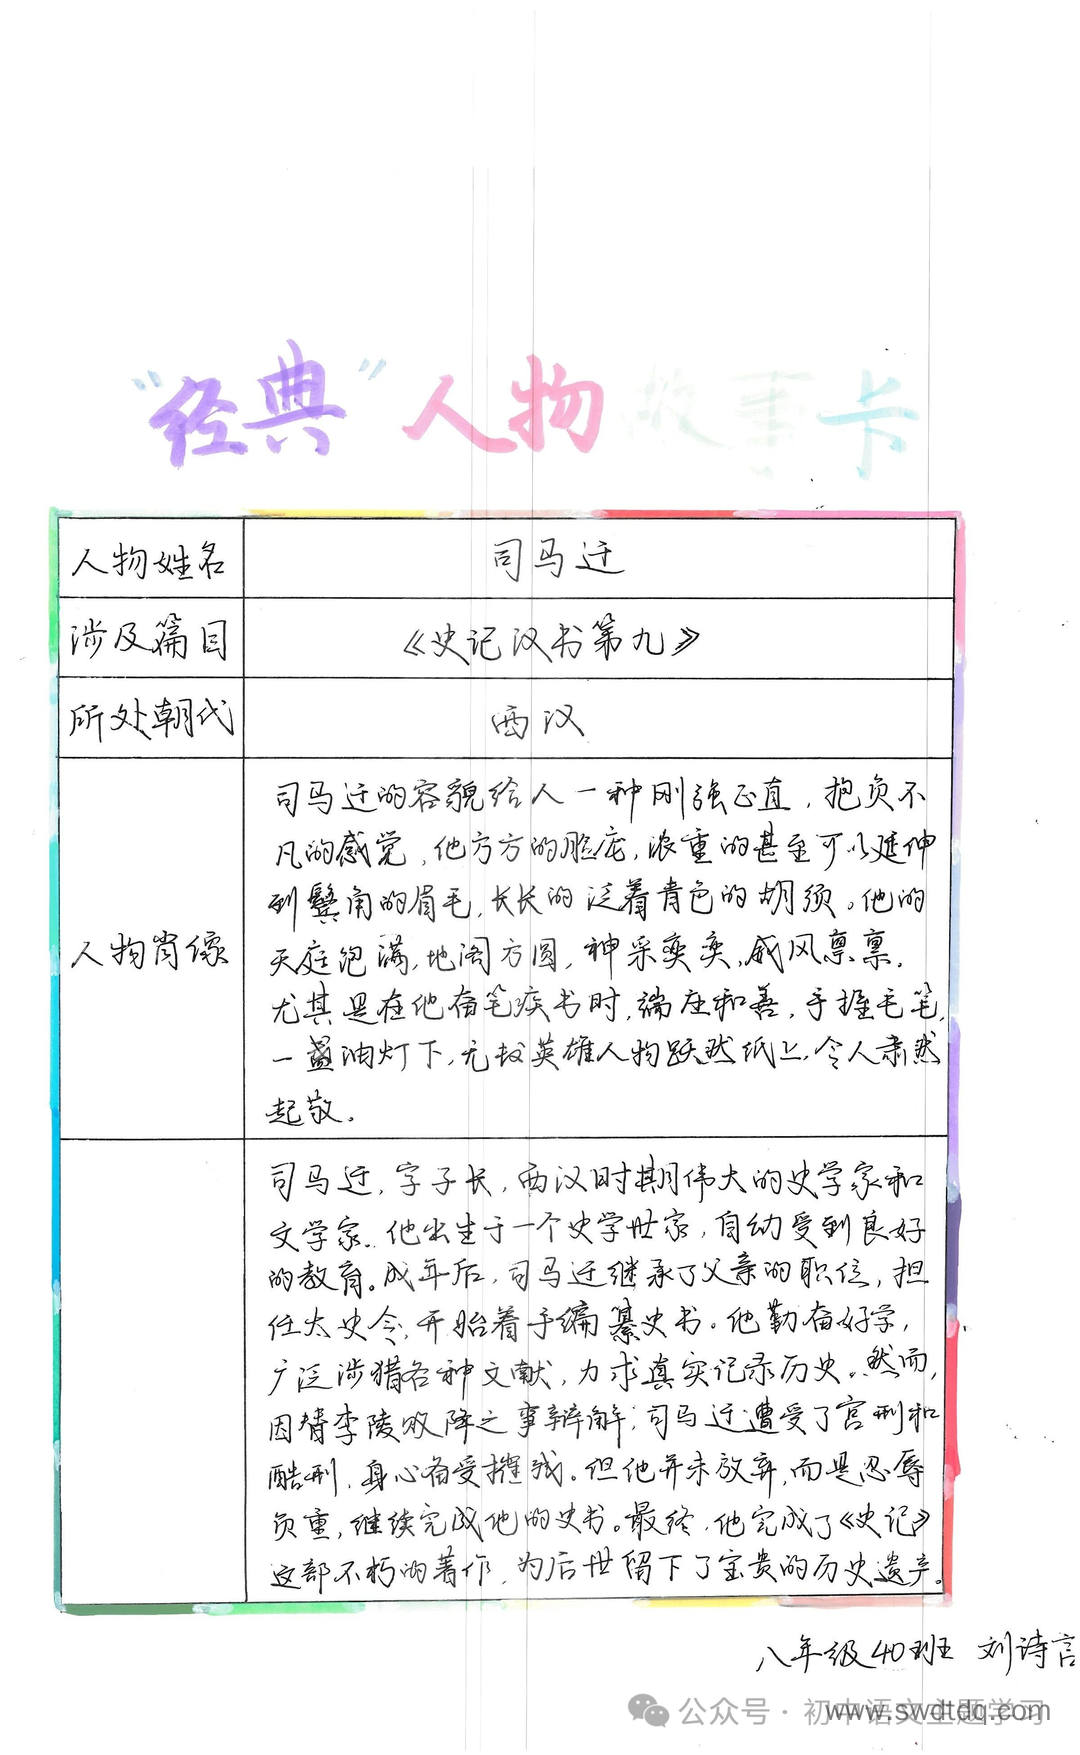 “经典”人物故事卡
人物姓名 司马迁
涉及篇目 《史记汉书第九》
所处朝代 西汉
人物肖像
司马迁的容貌给人一种刚强正直，抱负不
凡的感觉，他方方的脸庞，浓重的甚至可以延伸
到鬓角的眉毛，长长的泛着青色的胡须。他的
天庭饱满，地阁方圆，神采奕奕，威风凛凛，
尤其是在他奋笔疾书时，端座和善，手握毛笔，
一盏油灯下，无数英雄人物跃然纸上，令人肃然
起敬。
司马迁，字子长，西汉时期伟大的史学家和
文学家。他出生于一个史学世家，自幼受到良好
的教育。成年后，司马迁继承了父亲的职位，担
任太史令，开始着手编纂史书。他勤奋好学，
广泛涉猎各种文献，力求真实记录历史。然而，
因替李陵败降之事辩解，司马迁遭受了宫刑和
酷刑，身心备受摧残。但他并未放弃，而是忍辱
负重，继续完成他的史书。最终，他完成了《史记》
这部不朽的著作，为后世留下了宝贵的历史遗产。
八年级40班 刘诗言
公众号·初中语文主题学习
www.swdtdq.com